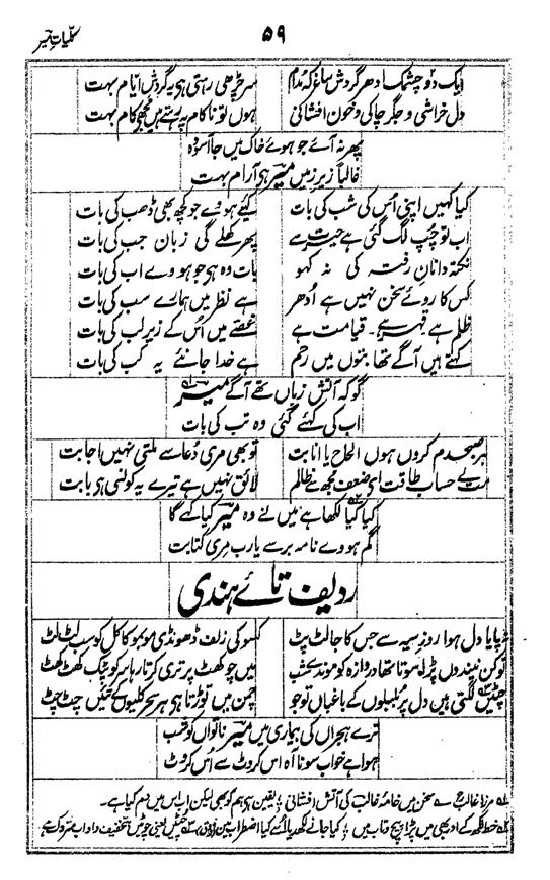 کلیاتِ میر
۵۹
ایک دو چشمک ادھر گردشِ ساغر کہ مدام سر چڑھی رہتی ہے یہ گردشِ ایّام بہت
دل خراشی و جگر چاکی و خون افشانی ہوں تو ناکام پہ رہتے ہیں مجھے کام بہت
پھر نہ آئے جو ہوئے خاک میں جا آسودہ
غالباً زیرِ زمیں میرؔ ہے آرام بہت
کیا کہیں اپنی اُس کی شب کی بات کہیے ہووے جو کچھ بھی ڈھب کی بات
اب تو چپ لگ گئی ہے حیرت سے پھر کھلے گی زبان جب کی بات
نکتہ دانانِ رفتہ کی نہ کہو بات وہ ہے جو ہووے اب کی بات
کس کا روئے سخن نہیں ہے اُدھر ہے نظر میں ہمارے سب کی بات
ظلم ہے قہر ہے۔ قیامت ہے غصّے میں اُس کے زیرِ لب کی بات
کہتے ہیں آگے تھا بتوں میں رحم ہے خدا جانئے یہ کب کی بات
گو کہ آتش زباں تھے آگے میرؔ
اب کی کہئے گئی وہ تب کی بات
ہر صبحدم کروں ہوں الحاح با انابت تو بھی مری دُعا سے ملتی نہیں اجابت
مت لے حساب طاقت ای ضعف مجھ سے ظالم لائق نہیں ہے تیرے یہ کونسی ہی بابت
کیا کیا لکھا ہے میں نے وہ میرؔ کیا کہے گا
گم ہووے نامہ بر سے یارب مری کتابت
ردیف تائے ہندی
پایا دل ہوا روزِ سیہ سے جس کا جا لٹ پٹ کسو کی زلف ڈھونڈی مو بمو کاکل کو سب لٹ لٹ
تو کن نیندوں پڑا سوتا تھا دروازہ کو موندے شب میں چوکھٹ پر تری کرتا رہا سر کو پٹک کھٹ کھٹ
چٹیں لگتی ہیں دل پر بلبلوں کے باغباں تو جو چمن میں توڑتا ہی ہر سحر کلیوں کے تئیں چٹ چٹ
ترے ہجراں کی بیماری میں میرؔ ناتواں کو شب
ہوا ہے خواب سونا آہ اس کروٹ سے اُس کروٹ
مرزا غالبؔ ے سخن میں خامۂ غالبؔ کی آتش افشانی ؛ یقین ہے ہم کو بھی لیکن اب اس میں دم کیا ہے۔